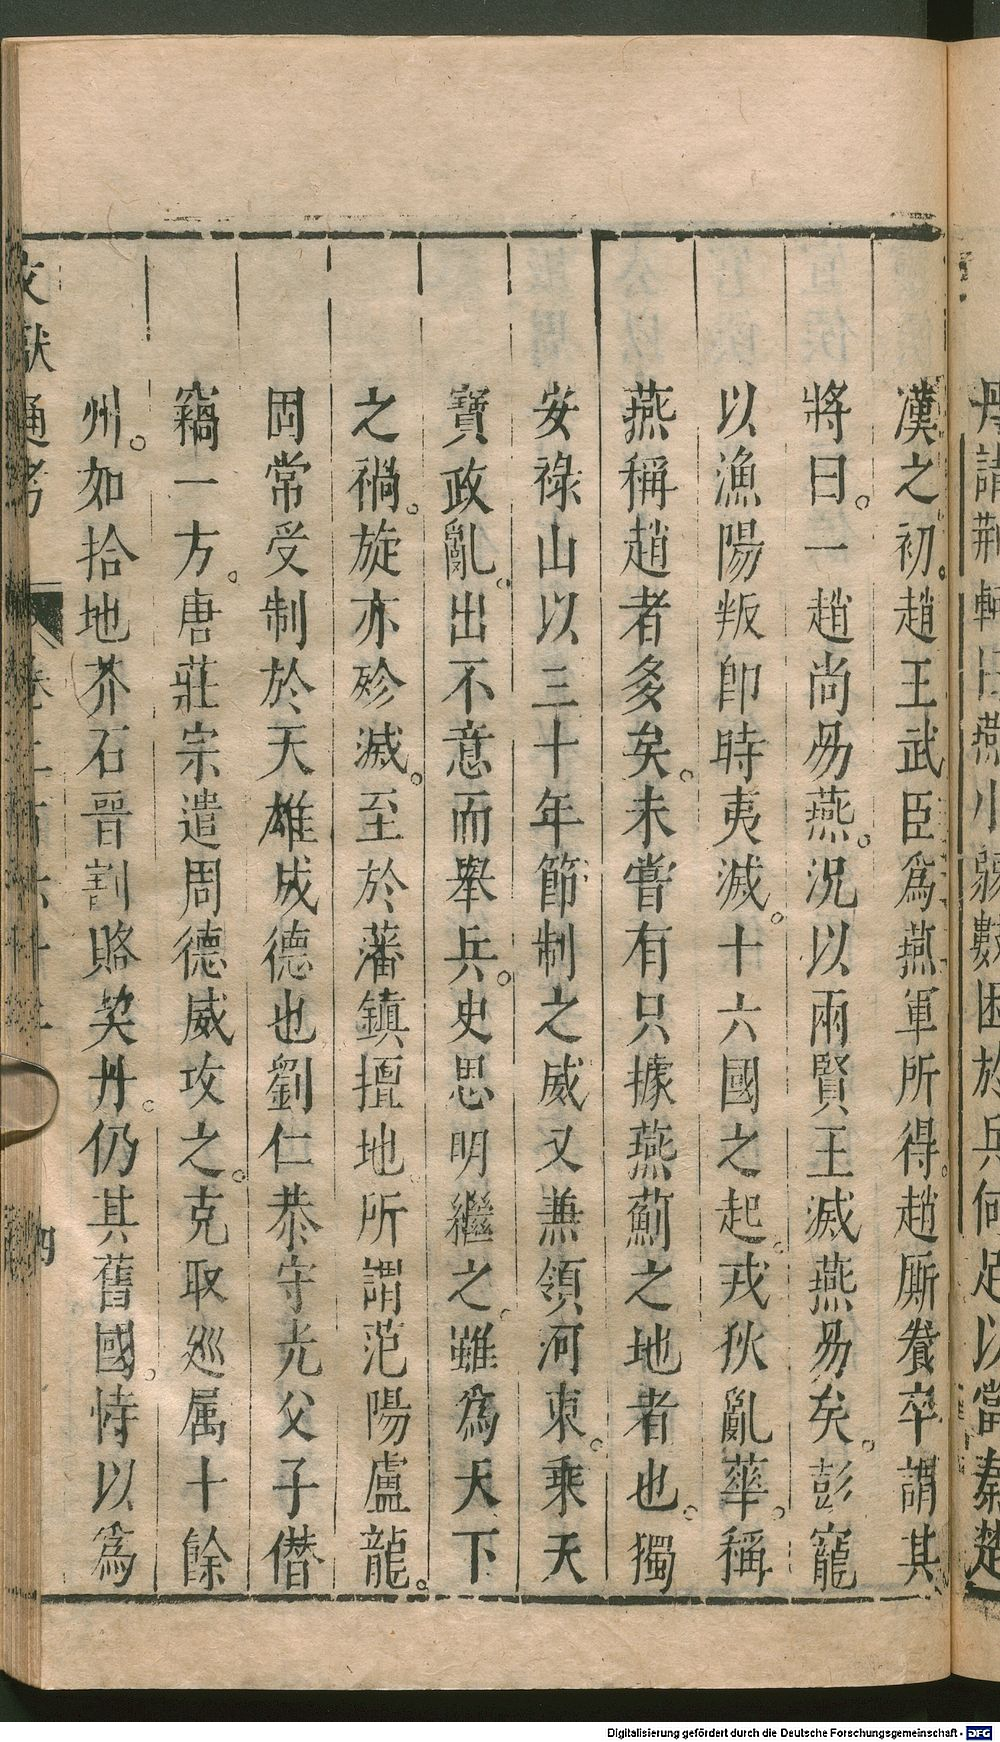 丹請荆軻曰燕小弱數困於兵何足以當秦趙
漢之初。趙王武臣爲燕軍所得。趙厮養卒謂其
將曰。一趙尚昜燕。况以兩賢王滅燕昜矣。彭寵
以漁陽叛卽時夷滅。十六國之起。戎狄亂華。稱
燕稱趙者多矣。未嘗有只據燕薊之地者也。獨
安祿山以三十年節制之威又兼領河東。乘天
寶政亂。出不意而舉兵。史思明繼之。雖爲天下
之禍。旋亦殄滅。至於藩鎮擅地。所謂范陽盧龍。
固常受制於天雄成德也劉仁恭守光父子僣
竊一方。唐莊宗遣周德威攻之。克取廵属十餘
州。如拾地芥石晋割賂契丹。仍其舊國。恃以爲
文獻通考 卷三百 四
Digitalisierung gefördert durch die Deutsche Forschungsgemeinschaft - DFG